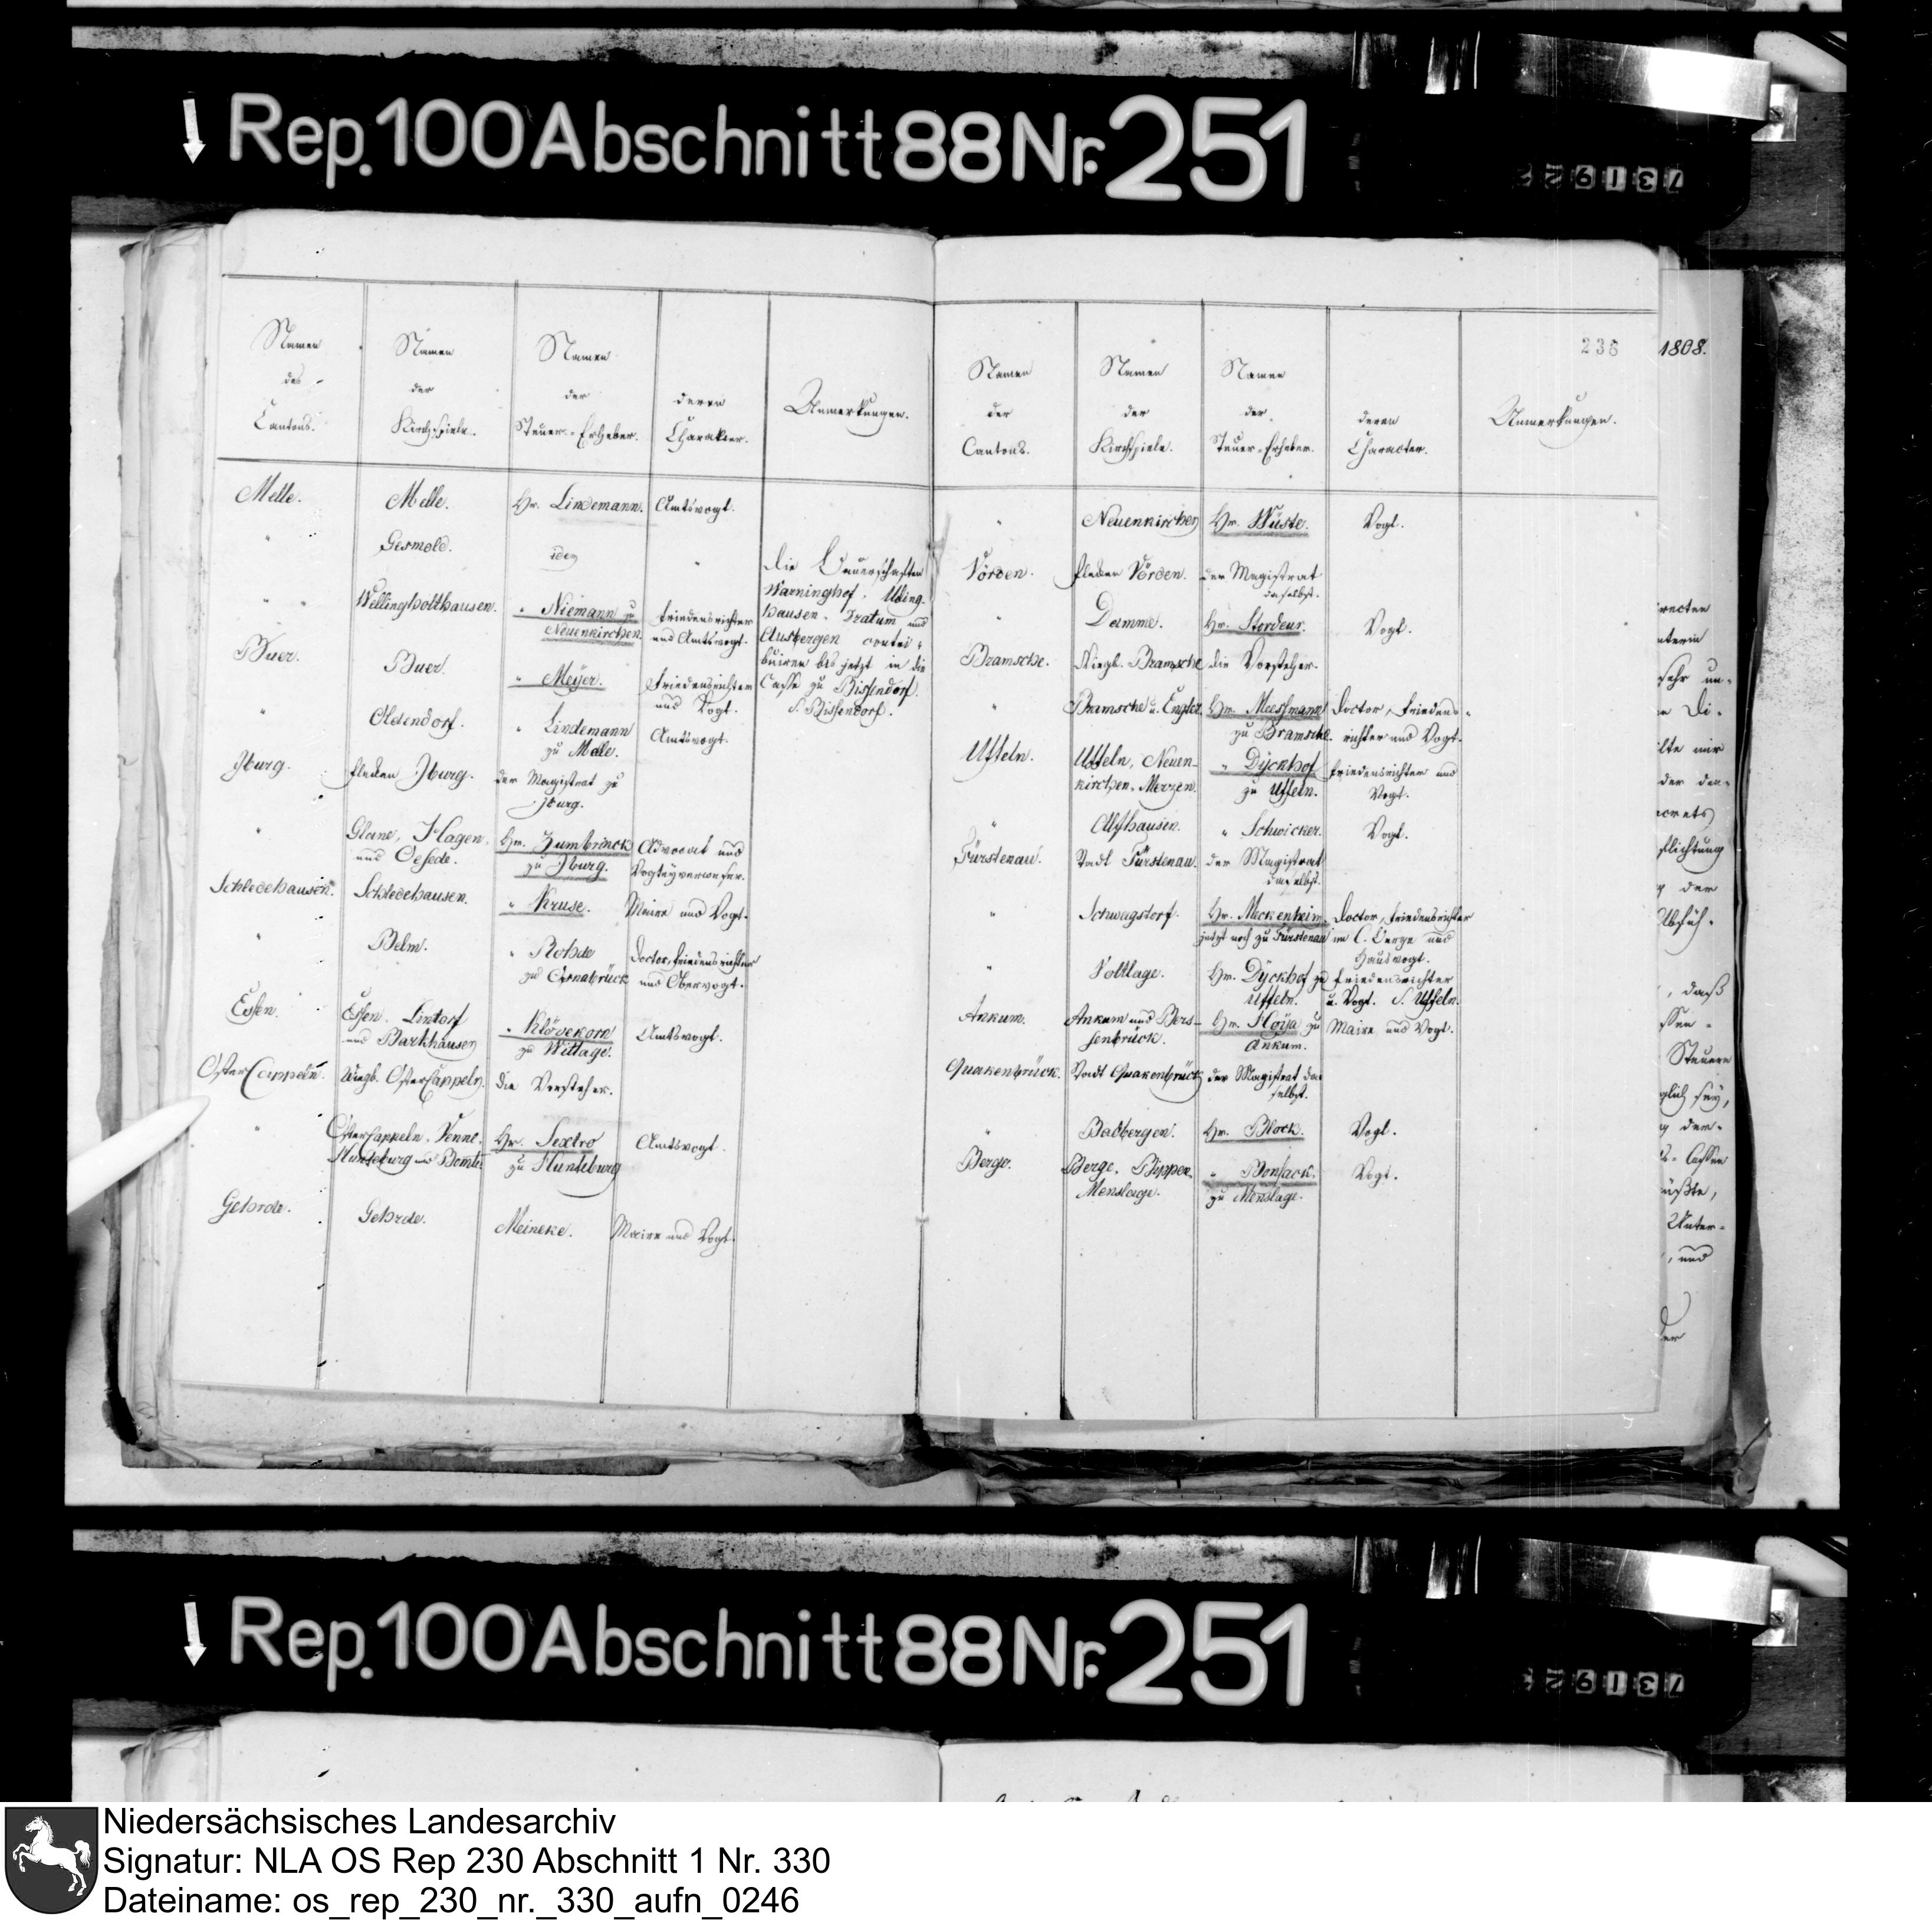 Rep. 100 Abschnitt 88 Nr. 251
731922
Namen des Cantons.
Namen der Kirchspiele.
Namen der Steuer-Erheber.
deren Charakter.
Anmerkungen.
Melle. Melle. Hr. Lindemann. Amtsvogt.
" Gesmold. idem "
" " Wellingholthausen. " Niemann zu Friedensrichter
Neuenkirchen. und Amtsvogt.
Buer. Buer. " Meÿer. Friedensrichter
und Vogt.
" Oldendorf. " Lindemann Amtsvogt.
zu Melle.
Die Bauerschaften
Warninghof, Uding-
hausen, Dratum und
Ausbergen contri-
buiren bis jetzt in die
Casse zu Bissendorf.
S. Bissendorf.
Jburg. Flecken Jburg. der Magistrat zu
Jburg.
" Glane, Hagen, Hr. Zumbrinck Advocat und
und Oesede. zu Jburg. Vogteyverweser.
Schledehausen. Schledehausen. " Kruse. Maire und Vogt.
" Belm. " Rohde Doctor, Friedensrichter
zu Osnabrück und Obervogt.
Essen. Essen, Lintorf " Klövekorn Amtsvogt.
und Barkhausen zu Wittlage.
OsterCappeln. Wiegb. OsterCappeln. die Vorsteher.
" OsterCappeln, Venne, Hr. Sextro Amtsvogt.
Hunteburg und Bomte zu Hunteburg
Gehrde. Gehrde. Meineke. Maire und Vogt.
236
Namen der Cantons.
Namen der Kirchspiele.
Namen der Steuer-Erheber.
deren Character.
Anmerkungen.
" Neuenkirchen Hr. Wüste. Vogt.
Vörden. Flecken Vörden. der Magistrat
daselbst.
" Damme. Hr. Stordeur. Vogt.
Bramsche. Wiegb. Bramsche die Vorsteher.
" Bramsche u. Engter. Hr. Meessmann Doctor, Friedens-
zu Bramsche. richter und Vogt.
Uffeln. Uffeln, Neuen- " Dÿckhof Friedensrichter und
kirchen, Merzen. zu Uffeln. Vogt.
" Alfhausen. " Schwicker. Vogt.
Fürstenau. Stadt Fürstenau. der Magistrat
daselbst.
" Schwagstorf. Hr. Meckenheim Doctor, Friedensrichter
jetzt noch zu Fürstenau im C. Berge und
Hausvogt.
" Voltlage. Hr. Dÿckhof zu Friedensrichter
Uffeln. u. Vogt. S. Uffeln.
Ankum. Ankum und Bers- Hr. Hoÿa zu Maire und Vogt.
senbrück. Ankum.
Quakenbrück. Stadt Quakenbrück der Magistrat da-
selbst.
" Badbergen. Hr. Block. Vogt.
Berge. Berge, Bippen, " Bonsack. Vogt.
Menslage. zu Menslage.
1808.
daß
Steuern
Unter-
, und
der
Rep. 100 Abschnitt 88 Nr. 251
731922
Niedersächsisches Landesarchiv
Signatur: NLA OS Rep 230 Abschnitt 1 Nr. 330
Dateiname: os_rep_230_nr._330_aufn_0246